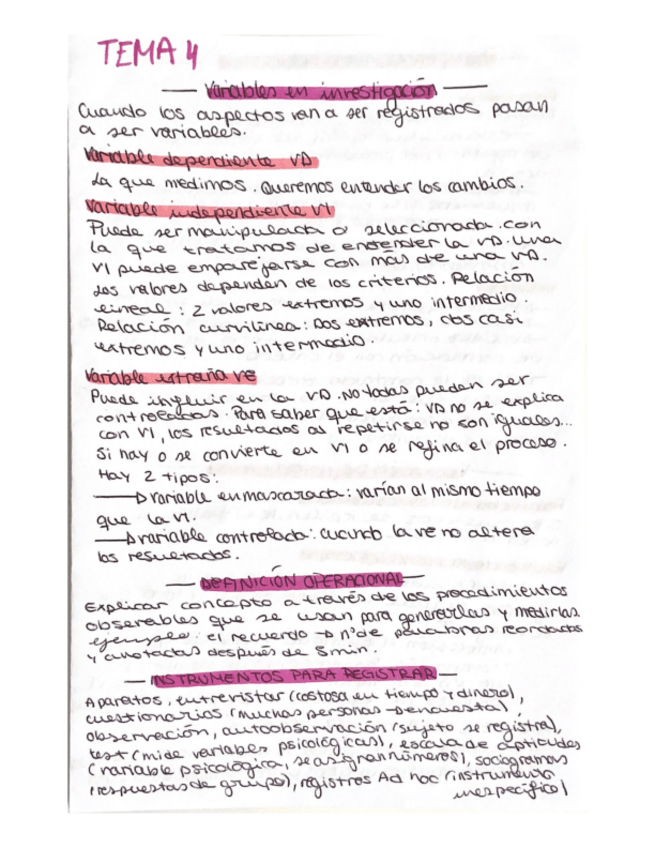 TEMA 4
Variables en investigación
Cuando los aspectos van a ser registrados pasan
a ser variables.
Variable dependiente VD
La que medimos. Queremos entender los cambios.
Variable independiente VI
Puede ser manipulada o seleccionada. con
la que tratamos de entender la VD. Una
VI puede emparejarse con más de una VD.
Los valores dependen de los criterios. Relación
lineal: 2 valores extremos y uno intermedio.
Relación curvilínea: Dos extremos, dos casi
extremos y uno intermedio.
Variable extraña VE
Puede influir en la VD. No todas pueden ser
controladas. Para saber que está: VD no se explica
con VI, los resultados al repetirse no son iguales...
Si hay o se convierte en VI o se refina el proceso.
Hay 2 tipos:
→ variable enmascarada: varían al mismo tiempo
que la VI.
→ variable controlada: cuando la ve no altera
los resultados.
DEFINICIÓN OPERACIONAL
Explicar concepto a través de los procedimientos
observables que se usan para generarlas y medirlas.
ejemplo: el recuerdo → nº de palabras recordadas
y anotadas después de 5min.
INSTRUMENTOS PARA REGISTRAR
Aparatos, entrevistar (costosa en tiempo y dinero),
cuestionarios (muchas personas → encuesta),
observación, autoobservación (sujeto se registra),
test (mide variables psicológicas), escala de aptitudes
(variable psicológica, se asignan números), sociogramas
(respuestas de grupo), registros Ad hoc (instrumento
inespecífico)